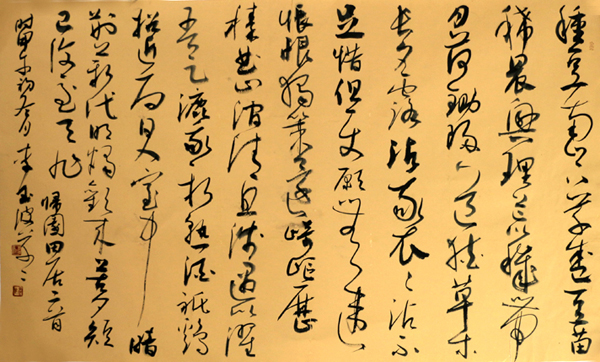 種豆南山下草盛豆苗
稀晨興理荒穢帶
月荷鋤歸道狹草木
長夕露沾我衣衣沾不
足惜但使願無違
悵恨獨策還崎嶇歷
榛曲山澗清且淺遇以濯
吾足漉我新熟酒祇鷄
招近局日入室中暗
荊薪代明燭歡來苦夕短
已復至天旭 歸園田居二首
時甲午初冬月李玉